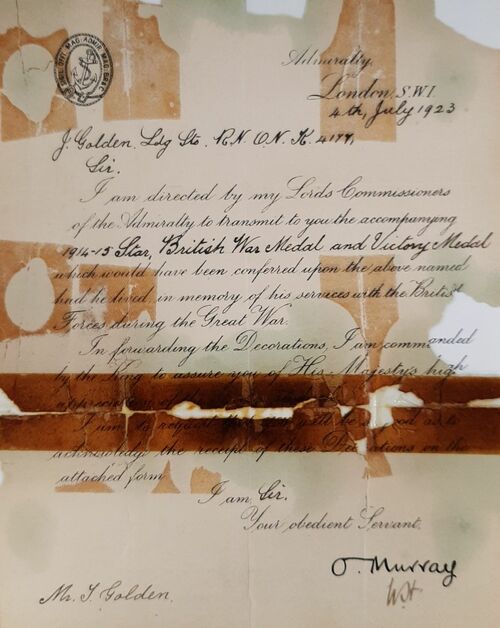 Admiralty,
London, S.W.1
4th, July 1923
J. Golden. Ldg Sto. R.N. O.N. K. 4177,
Sir.
I am directed by my Lords Commissioners
of the Admiralty to transmit to you the accompanying
1914-15 Star, British War Medal and Victory Medal
which would have been conferred upon the above named
had he lived, in memory of his services with the British
Forces during the Great War.
In forwarding the Decorations, I am commanded
by the King to assure you of His Majesty's high
appreciation of
I am to request that you will be so good as to
acknowledge the receipt of these Decorations on the
attached form
I am, Sir,
Your obedient Servant,
O. Murray
Mr. T. Golden.